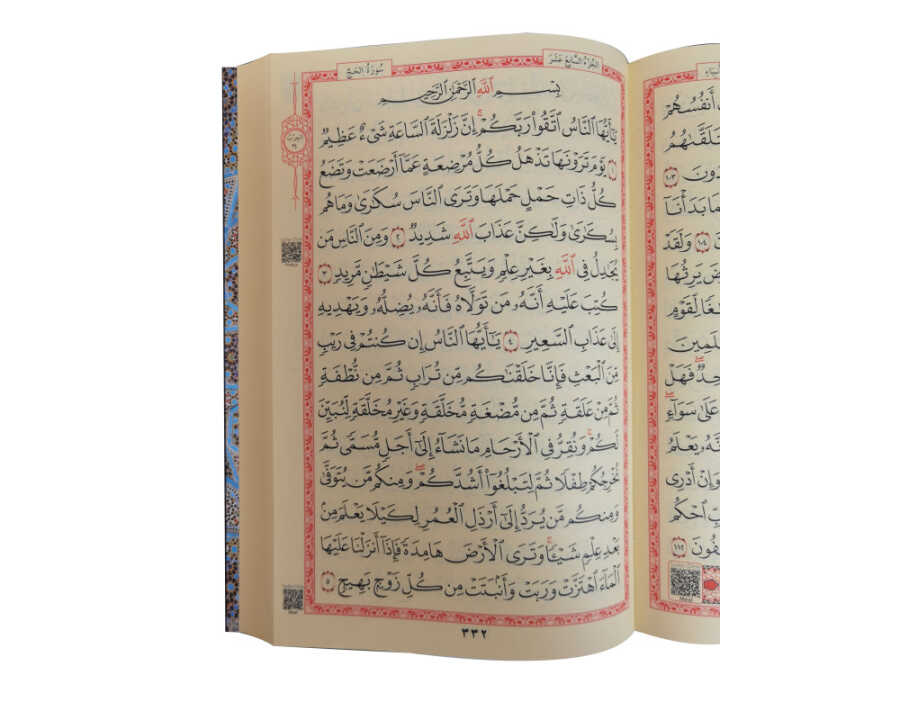 سُورَةُ الحَجِّ
الجُزْءُ السَّابِعَ عَشَرَ
بِسْمِ ٱللَّهِ ٱلرَّحْمَٰنِ ٱلرَّحِيمِ
يَٰٓأَيُّهَا ٱلنَّاسُ ٱتَّقُوا۟ رَبَّكُمْ ۚ إِنَّ زَلْزَلَةَ ٱلسَّاعَةِ شَىْءٌ عَظِيمٌ
١ يَوْمَ تَرَوْنَهَا تَذْهَلُ كُلُّ مُرْضِعَةٍ عَمَّآ أَرْضَعَتْ وَتَضَعُ
كُلُّ ذَاتِ حَمْلٍ حَمْلَهَا وَتَرَى ٱلنَّاسَ سُكَٰرَىٰ وَمَا هُم
بِسُكَٰرَىٰ وَلَٰكِنَّ عَذَابَ ٱللَّهِ شَدِيدٌ ٢ وَمِنَ ٱلنَّاسِ مَن
يُجَٰدِلُ فِى ٱللَّهِ بِغَيْرِ عِلْمٍ وَيَتَّبِعُ كُلَّ شَيْطَٰنٍ مَّرِيدٍ ٣
كُتِبَ عَلَيْهِ أَنَّهُۥ مَن تَوَلَّاهُ فَأَنَّهُۥ يُضِلُّهُۥ وَيَهْدِيهِ
إِلَىٰ عَذَابِ ٱلسَّعِيرِ ٤ يَٰٓأَيُّهَا ٱلنَّاسُ إِن كُنتُمْ فِى رَيْبٍ
مِّنَ ٱلْبَعْثِ فَإِنَّا خَلَقْنَٰكُم مِّن تُرَابٍ ثُمَّ مِن نُّطْفَةٍ
ثُمَّ مِنْ عَلَقَةٍ ثُمَّ مِن مُّضْغَةٍ مُّخَلَّقَةٍ وَغَيْرِ مُخَلَّقَةٍ لِّنُبَيِّنَ
لَكُمْ ۚ وَنُقِرُّ فِى ٱلْأَرْحَامِ مَا نَشَآءُ إِلَىٰٓ أَجَلٍ مُّسَمًّى ثُمَّ
نُخْرِجُكُمْ طِفْلًا ثُمَّ لِتَبْلُغُوٓا۟ أَشُدَّكُمْ ۖ وَمِنكُم مَّن يُتَوَفَّىٰ
وَمِنكُم مَّن يُرَدُّ إِلَىٰٓ أَرْذَلِ ٱلْعُمُرِ لِكَيْلَا يَعْلَمَ مِنۢ
بَعْدِ عِلْمٍ شَيْـًٔا ۚ وَتَرَى ٱلْأَرْضَ هَامِدَةً فَإِذَآ أَنزَلْنَا عَلَيْهَا
ٱلْمَآءَ ٱهْتَزَّتْ وَرَبَتْ وَأَنۢبَتَتْ مِن كُلِّ زَوْجٍۭ بَهِيجٍ ٥
٣٣٢
أَنفُسُهُمْ
تَلَقَّىٰهُمُ
١٠٣
بَدَأْنَآ
١٠٤ وَلَقَدْ
يَرِثُهَا
لِّقَوْمٍ
فَهَلْ
عَلَىٰ سَوَآءٍ
يَعْلَمُ
وَإِنْ أَدْرِى
ٱحْكُم
١١٢